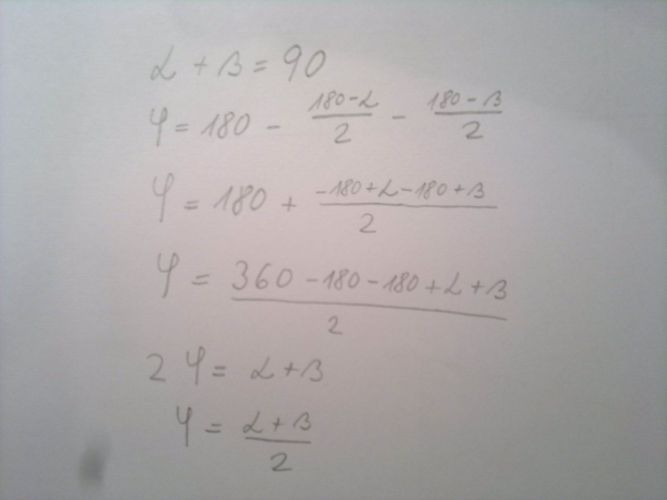 α + β = 90
φ = 180 - (180-α)/2 - (180-β)/2
φ = 180 + (-180+α-180+β)/2
φ = (360-180-180+α+β)/2
2φ = α+β
φ = (α+β)/2